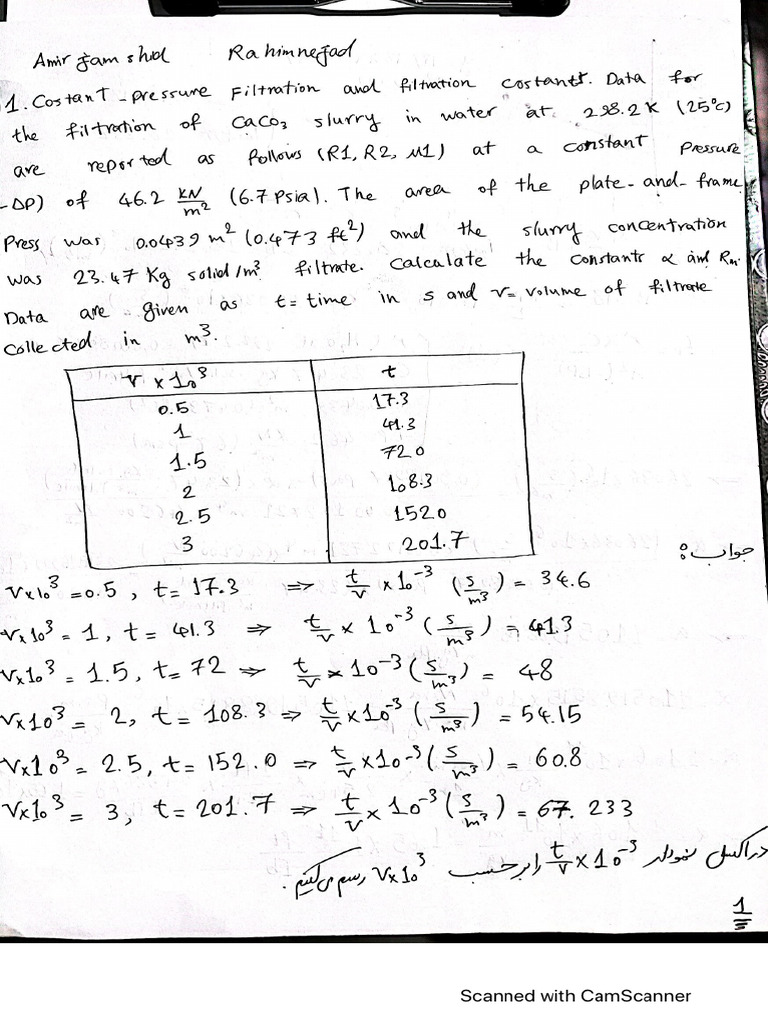 Amir jam shid Rahimnejad
1. Costant - pressure Filtration and filtration costants. Data for
the filtration of CaCo3 slurry in water at 298.2 K (25°C)
are reported as follows (R1, R2, M1) at a constant pressure
-ΔP) of 46.2 KN/m² (6.7 Psia). The area of the plate-and-frame
Press was 0.0439 m² (0.473 ft²) and the slurry concentration
was 23.47 Kg solid/m³ filtrate. Calculate the constants α and Rm.
Data are given as t = time in s and v = volume of filtrate
collected in m³.
v × 10³ t
0.5 17.3
1 41.3
1.5 720
2 108.3
2.5 1520
3 201.7
جواب:
v×10³ = 0.5, t = 17.3 ⇒ t/v × 10⁻³ (s/m³) = 34.6
v×10³ = 1, t = 41.3 ⇒ t/v × 10⁻³ (s/m³) = 41.3
v×10³ = 1.5, t = 72 ⇒ t/v × 10⁻³ (s/m³) = 48
v×10³ = 2, t = 108.3 ⇒ t/v × 10⁻³ (s/m³) = 54.15
v×10³ = 2.5, t = 152.0 ⇒ t/v × 10⁻³ (s/m³) = 60.8
v×10³ = 3, t = 201.7 ⇒ t/v × 10⁻³ (s/m³) = 67.233
در اکسل نمودار t/v × 10⁻³ را بر حسب v×10³ رسم می کنیم.
1
Scanned with CamScanner